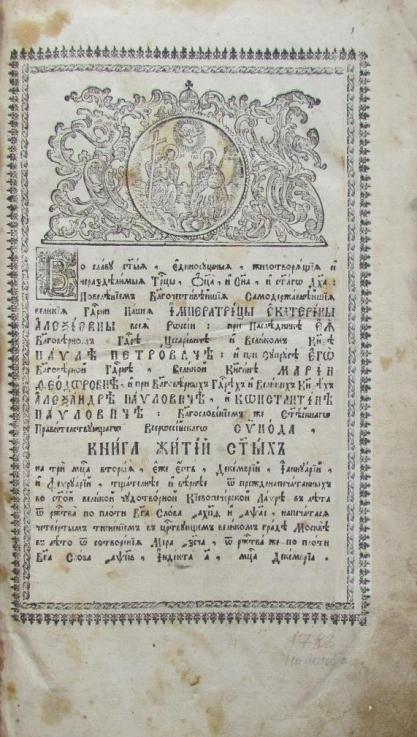 Во славу ст҃ыѧ , єдиносущныѧ , животворѧщїѧ и
нераздѣлимыѧ Трⷪ҇цы , Ѻ҆ц҃а , и Сн҃а , и ст҃агѡ Дх҃а :
Повелѣнїемъ Благочестивѣйшїѧ Самодержавнѣйшїѧ
великїѧ Гдⷭ҇рни Нашеѧ ІМПЕРАТРІЦЫ ЕКАТЕРІНЫ
АЛЕѮІЕВНЫ всеѧ Россїи : при Наслѣдникѣ ЕѦ
Благовѣрномъ Гдⷭ҇рѣ Цесаревичѣ и Великомъ Кнѧ҃зѣ
ПАУЛѢ ПЕТРОВИЧѢ : и при Супрꙋгѣ ЕГѠ
Благовѣрной Гдⷭ҇рнѣ , Великой Кнѧгинѣ МАРІИ
ѲЕОДѠРОВНѢ , и при Благовѣрныхъ Гдⷭ҇рѣхъ и Великихъ Кнѧ҃зѣхъ
АЛЕѮАНДРѢ ПАУЛОВИЧѢ , и КѠНСТАНТІНѢ
ПАУЛОВИЧѢ : Благословенїемъ же Ст҃ѣйшагѡ
Правительствующагѡ Всероссїйскагѡ СѴНОДА ,
КНИГА ЖИТІЙ СТ҃ЫХЪ
на три мцⷭ҇а вторыѧ , єже єсть , Декемврїй , Іаннуарїй ,
и Феврꙋарїй , тщателнѣе и вѣрнѣе ѿ преждепечатанныхъ
во ст҃ой великой чудотворной Кїевопечерской Лаврѣ въ лѣта
ѿ ржⷭ҇тва по плоти Бг҃а Слова
четвертымъ тисненїемъ въ царствующемъ великомъ градѣ Москвѣ
въ лѣто ѿ сотворенїѧ Мїра , ѿ ржⷭ҇тва же по плоти
Бг҃а Слова , Їндїкта , мцⷭ҇а Декемврїа .